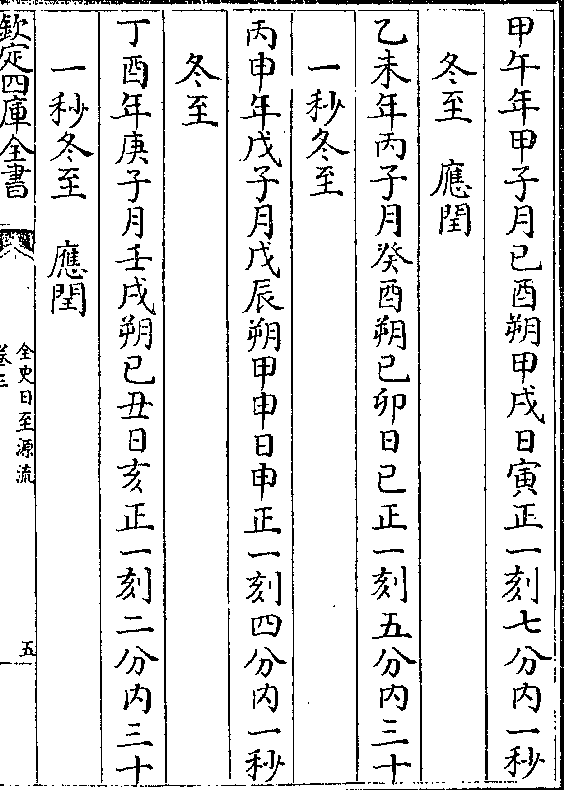 甲午年甲子月己酉朔甲戌日寅正一刻七分内一秒
冬至　應閏
乙未年丙子月癸酉朔己卯日巳正一刻五分内三十
一秒冬至
丙申年戊子月戊辰朔甲申日申正一刻四分内一秒
冬至
丁酉年庚子月壬戌朔己丑日亥正一刻二分内三十
一秒冬至　應閏
欽定四庫全書
全史日至源流
卷三
五